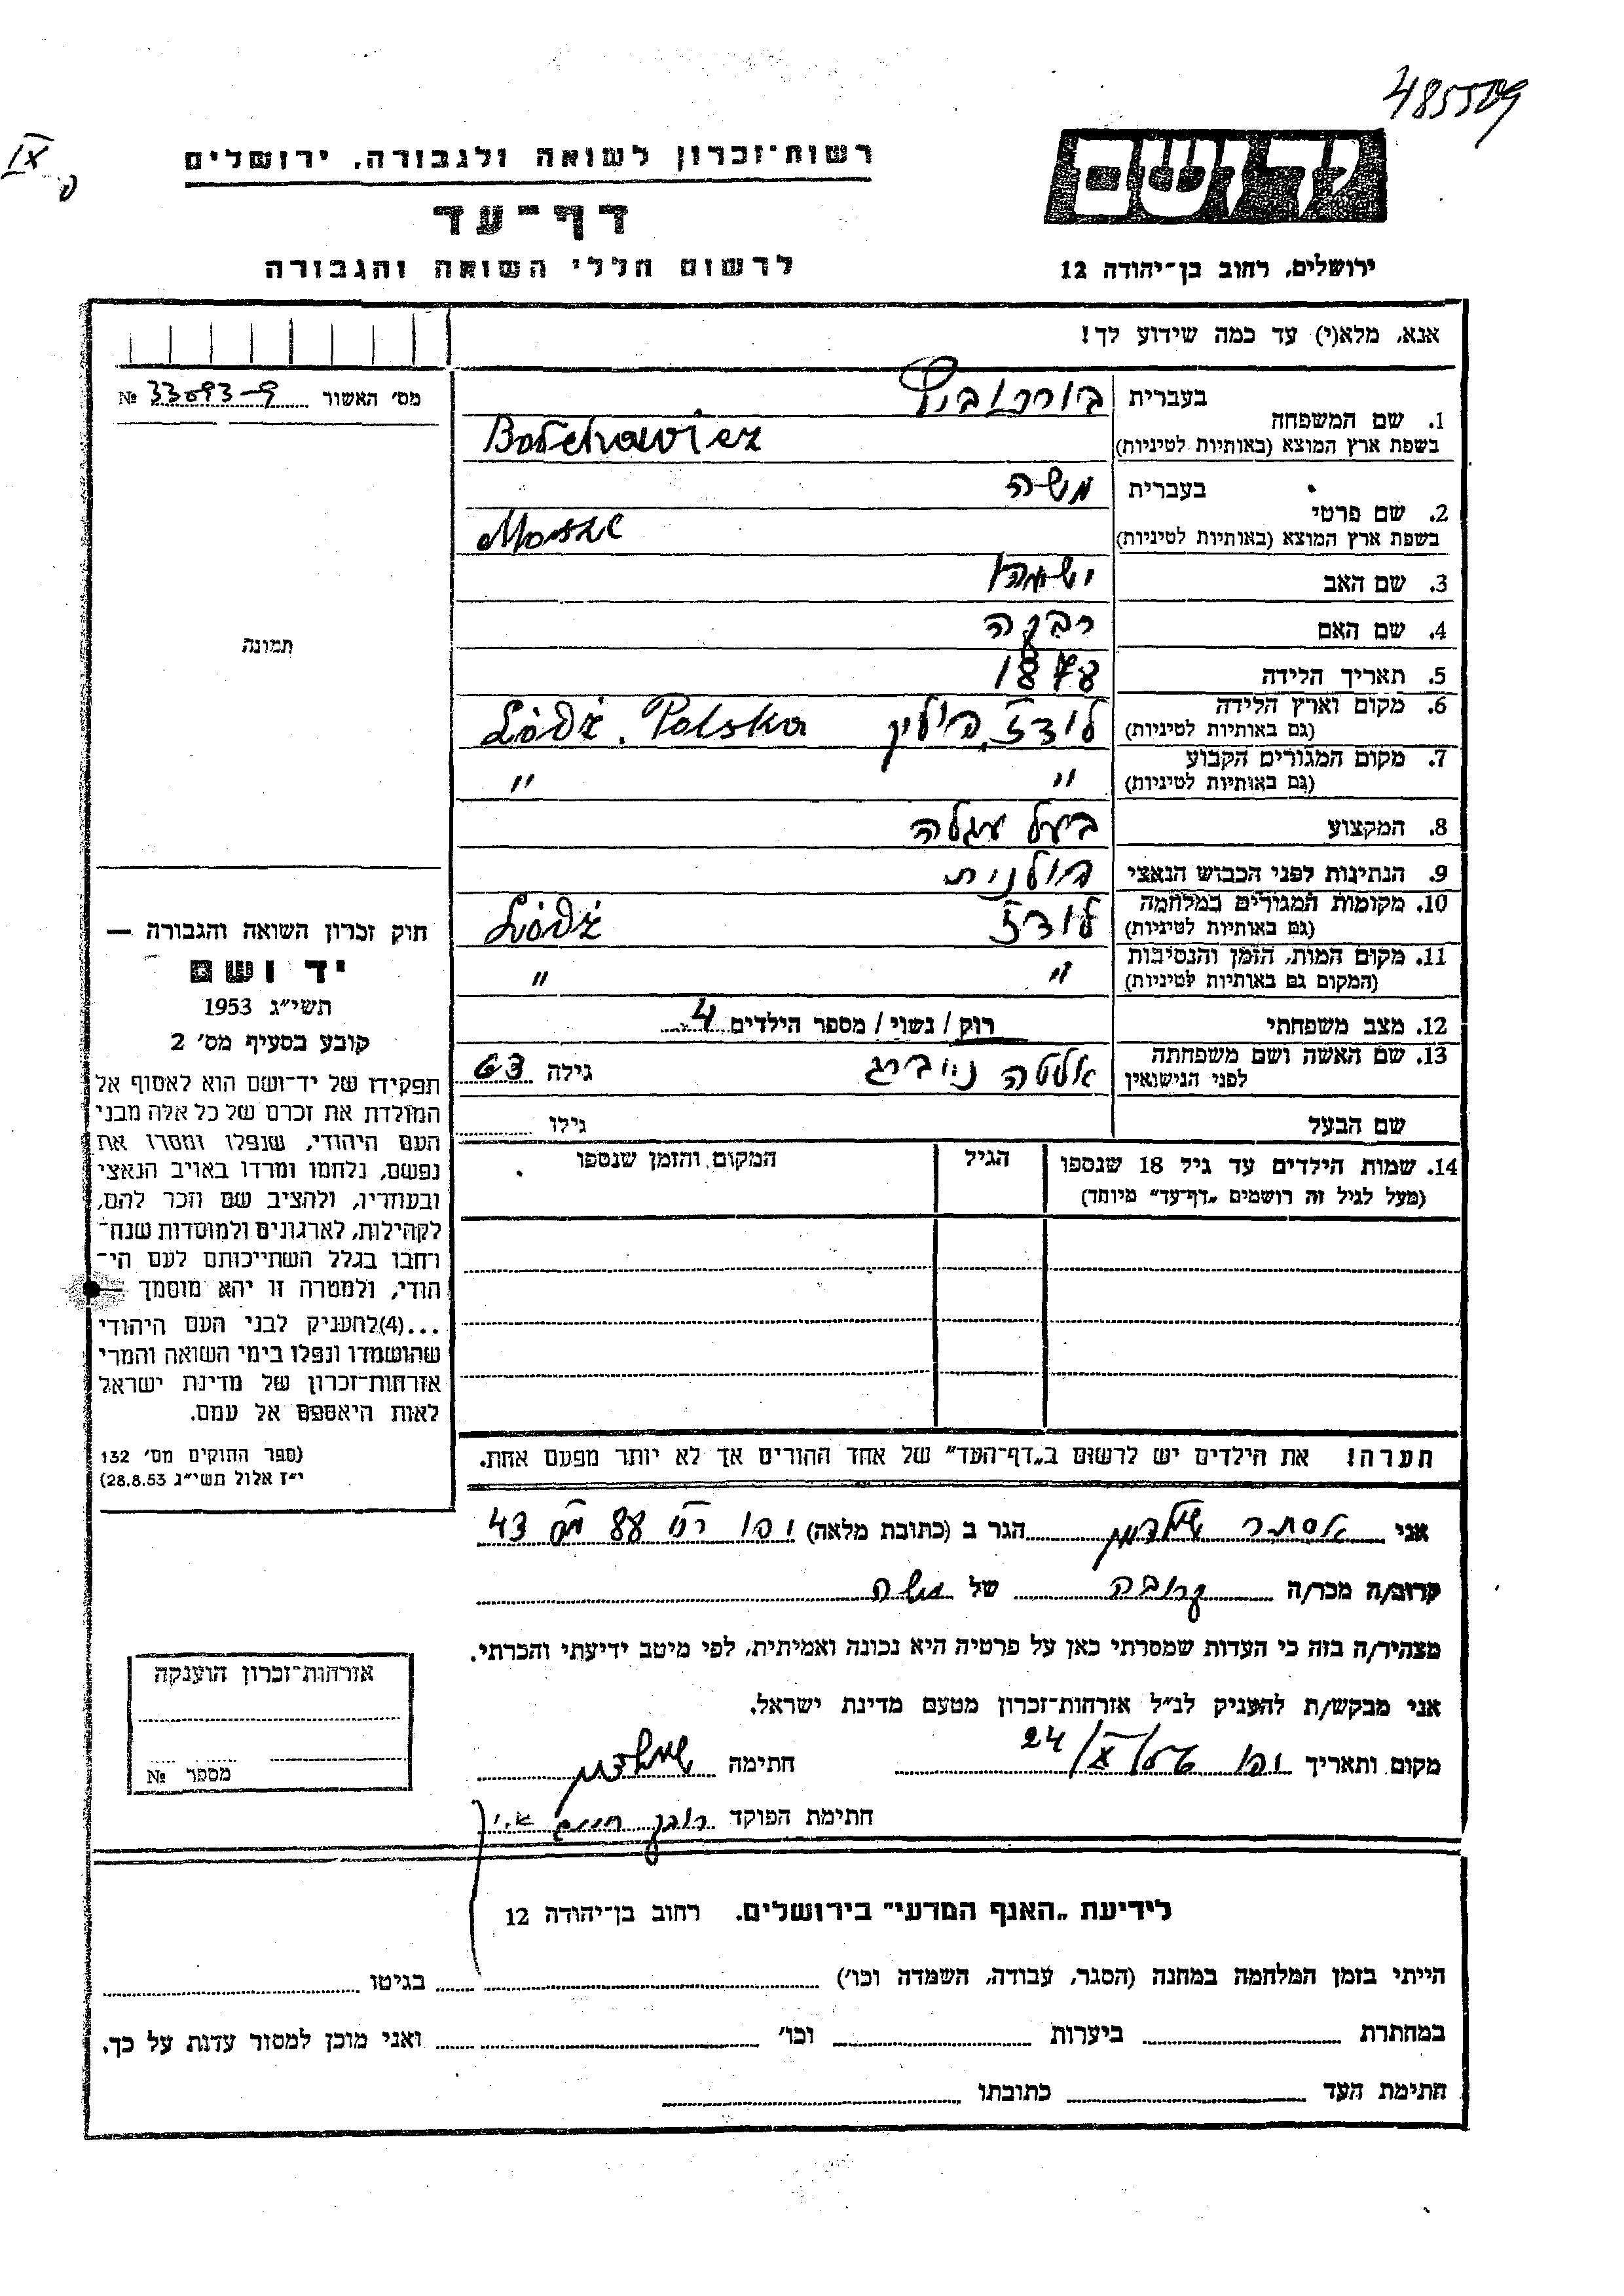 485509
IX
רשות־זכרון לשואה ולגבורה, ירושלים
ידושם
דף־עד
ירושלים, רחוב בן־יהודה 12
לרשום חללי השואה והגבורה
אנא, מלא(י) עד כמה שידוע לך!
מס' האשור 33093-9 №
1. שם המשפחה
בעברית
בשפת ארץ המוצא (באותיות לטיניות)
2. שם פרטי
בעברית משה
בשפת ארץ המוצא (באותיות לטיניות) Mosze
3. שם האב
4. שם האם רבקה
5. תאריך הלידה 1878
6. מקום וארץ הלידה לודז, פולין Łódź. Polska
(גם באותיות לטיניות)
7. מקום המגורים הקבוע " "
(גם באותיות לטיניות)
8. המקצוע בעל עגלה
9. הנתינות לפני הכבוש הנאצי פולנית
10. מקומות המגורים במלחמה לודז Łódź
(גם באותיות לטיניות)
11. מקום המות, הזמן והנסיבות " "
(המקום גם באותיות לטיניות)
12. מצב משפחתי רוק / נשוי / מספר הילדים 4
13. שם האשה ושם משפחתה לפני הנישואין ניוברג גילה 63
שם הבעל גילו
14. שמות הילדים עד גיל 18 שנספו
(מעל לגיל זה רושמים „דף־עד" מיוחד)
הגיל
המקום והזמן שנספו
תמונה
חוק זכרון השואה והגבורה —
יד ושם
תשי"ג 1953
קובע בסעיף מס' 2
תפקידו של יד־ושם הוא לאסוף אל
המולדת את זכרם של כל אלה מבני
העם היהודי, שנפלו ומסרו את
נפשם, נלחמו ומרדו באויב הנאצי
ובעוזריו, ולהציב שם וזכר להם,
לקהילות, לארגונים ולמוסדות שנח־
רבו בגלל השתייכותם לעם הי־
הודי, ולמטרה זו יהא מוסמך —
...(4) להעניק לבני העם היהודי
שהושמדו ונפלו בימי השואה והמרי
אזרחות־זכרון של מדינת ישראל
לאות היאספם אל עמם.
(ספר החוקים מס' 132
י"ז אלול תשי"ג 28.8.53)
הערה! את הילדים יש לרשום ב„דף־העד" של אחד ההורים אך לא יותר מפעם אחת.
אני אסתר הגר ב (כתובת מלאה) יפו 88 43
קרוב/ה מכר/ה קרובה של משה
מצהיר/ה בזה כי העדות שמסרתי כאן על פרטיה היא נכונה ואמיתית, לפי מיטב ידיעתי והכרתי.
אני מבקש/ת להעניק לנ"ל אזרחות־זכרון מטעם מדינת ישראל.
מקום ותאריך יפו X/24 חתימה
חתימת הפוקד חיים
אזרחות־זכרון הוענקה
מספר №
לידיעת „האגף המדעי" בירושלים, רחוב בן־יהודה 12
הייתי בזמן המלחמה במחנה (הסגר, עבודה, השמדה וכו') בגיטו
במחתרת ביערות וכו' ואני מוכן למסור עדות על כך.
חתימת העד כתובתו